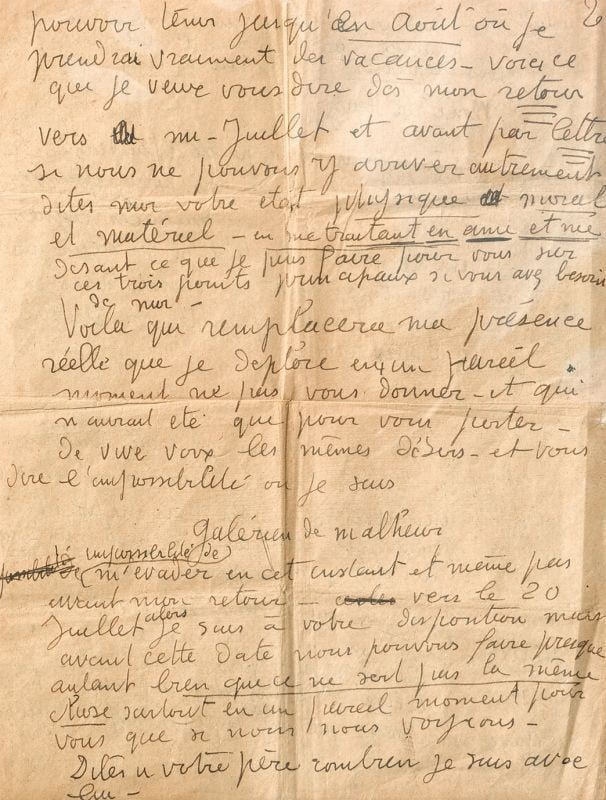 2
pouvoir tenir jusqu'en Août où je
prendrai vraiment des vacances - voici ce
que je veux vous dire dès mon retour
vers mi-Juillet et avant par lettre
si nous ne pouvons y arriver autrement
dites moi votre état physique moral
et matériel - en me traitant en amie et me
disant ce que je puis faire pour vous sur
ces trois points principaux si vous avez besoin
de moi -
Voilà qui remplacera ma présence
réelle que je déplore en un pareil
moment ne pas vous donner - et qui
n'aurait été que pour vous porter -
de vive voix les mêmes désirs - et vous
dire l'impossibilité où je suis
galérien de malheur
impossibilité de
m'évader en cet instant et même pas
avant mon retour - vers le 20
Juillet alors je suis à votre disposition mais
avant cette date nous pouvons faire presque
autant bien que ce ne soit pas la même
chose surtout en un pareil moment pour
vous que si nous nous voyions -
Dites à votre père combien je suis avec
lui -